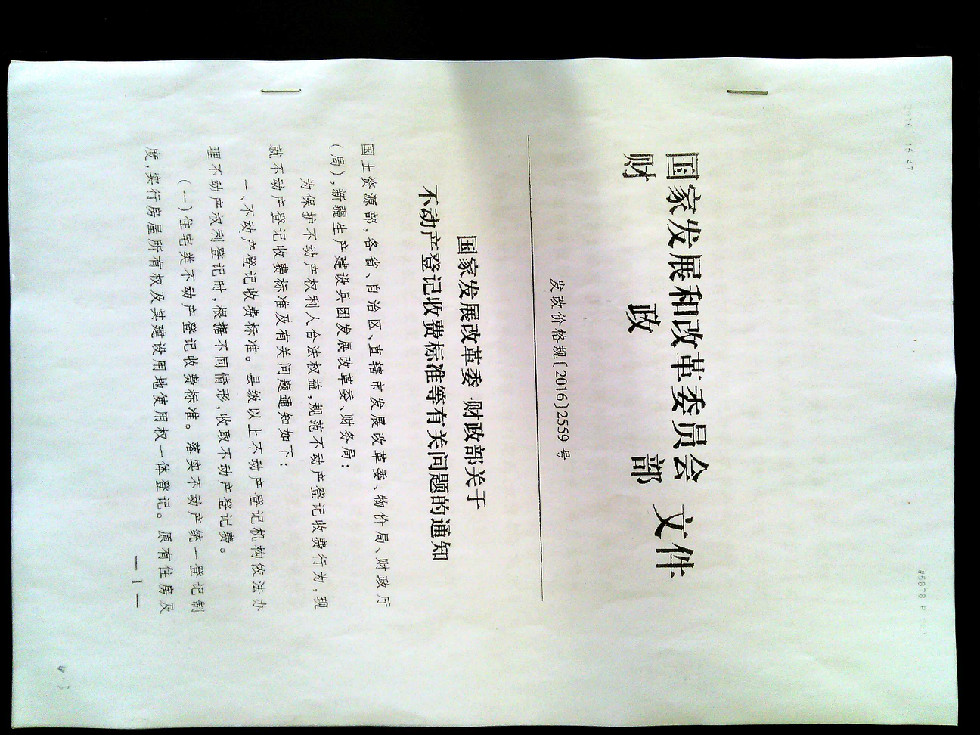 国家发展和改革委员会
财政部
文件
发改价格规〔2016〕2559号
国家发展改革委 财政部关于
不动产登记收费标准等有关问题的通知
国土资源部,各省、自治区、直辖市发展改革委、物价局、财政厅
(局),新疆生产建设兵团发展改革委、财务局:
为保护不动产权利人合法权益,规范不动产登记收费行为,现
就不动产登记收费标准及有关问题通知如下:
一、不动产登记收费标准。县级以上不动产登记机构依法办
理不动产权利登记时,根据不同情形,收取不动产登记费。
(一)住宅类不动产登记收费标准。落实不动产统一登记制
度,实行房屋所有权及其建设用地使用权一体登记。原有住房及
— 1 —